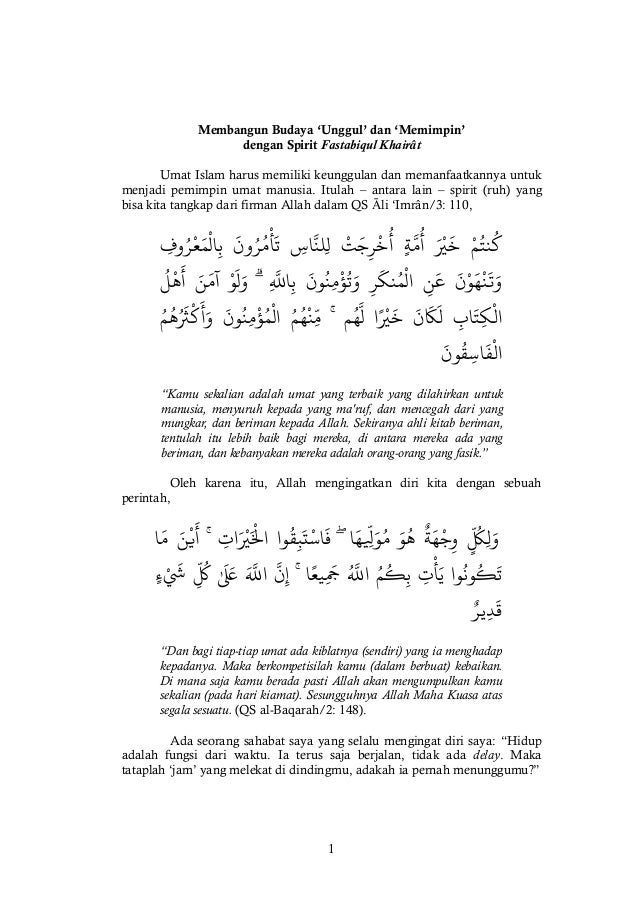 Membangun Budaya ‘Unggul’ dan ‘Memimpin’
dengan Spirit Fastabiqul Khairât
Umat Islam harus memiliki keunggulan dan memanfaatkannya untuk
menjadi pemimpin umat manusia. Itulah – antara lain – spirit (ruh) yang
bisa kita tangkap dari firman Allah dalam QS Āli ‘Imrân/3: 110,
كُنتُمْ خَيْرَ أُمَّةٍ أُخْرِجَتْ لِلنَّاسِ تَأْمُرُونَ بِالْمَعْرُوفِ
وَتَنْهَوْنَ عَنِ الْمُنكَرِ وَتُؤْمِنُونَ بِاللَّهِ ۗ وَلَوْ آمَنَ أَهْلُ
الْكِتَابِ لَكَانَ خَيْرًا لَّهُم ۚ مِّنْهُمُ الْمُؤْمِنُونَ وَأَكْثَرُهُمُ
الْفَاسِقُونَ
“Kamu sekalian adalah umat yang terbaik yang dilahirkan untuk
manusia, menyuruh kepada yang ma'ruf, dan mencegah dari yang
mungkar, dan beriman kepada Allah. Sekiranya ahli kitab beriman,
tentulah itu lebih baik bagi mereka, di antara mereka ada yang
beriman, dan kebanyakan mereka adalah orang-orang yang fasik.”
Oleh karena itu, Allah mengingatkan diri kita dengan sebuah
perintah,
وَلِكُلٍّ وِجْهَةٌ هُوَ مُوَلِّيهَا ۖ فَاسْتَبِقُوا الْخَيْرَاتِ ۚ أَيْنَ مَا
تَكُونُوا يَأْتِ بِكُمُ اللَّهُ جَمِيعًا ۚ إِنَّ اللَّهَ عَلَىٰ كُلِّ شَيْءٍ
قَدِيرٌ
“Dan bagi tiap-tiap umat ada kiblatnya (sendiri) yang ia menghadap
kepadanya. Maka berkompetisilah kamu (dalam berbuat) kebaikan.
Di mana saja kamu berada pasti Allah akan mengumpulkan kamu
sekalian (pada hari kiamat). Sesungguhnya Allah Maha Kuasa atas
segala sesuatu. (QS al-Baqarah/2: 148).
Ada seorang sahabat saya yang selalu mengingat diri saya: “Hidup
adalah fungsi dari waktu. Ia terus saja berjalan, tidak ada delay. Maka
tataplah ‘jam’ yang melekat di dindingmu, adakah ia pernah menunggumu?”
1